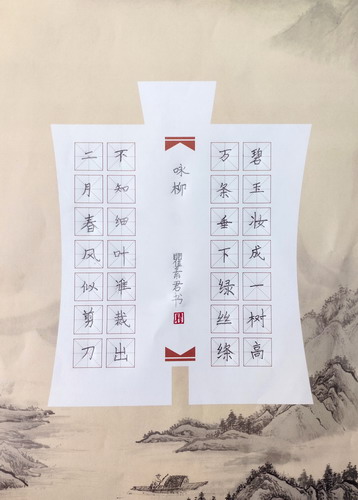 碧玉妆成一树高
万条垂下绿丝绦
咏柳
君书
不知细叶谁裁出
二月春风似剪刀